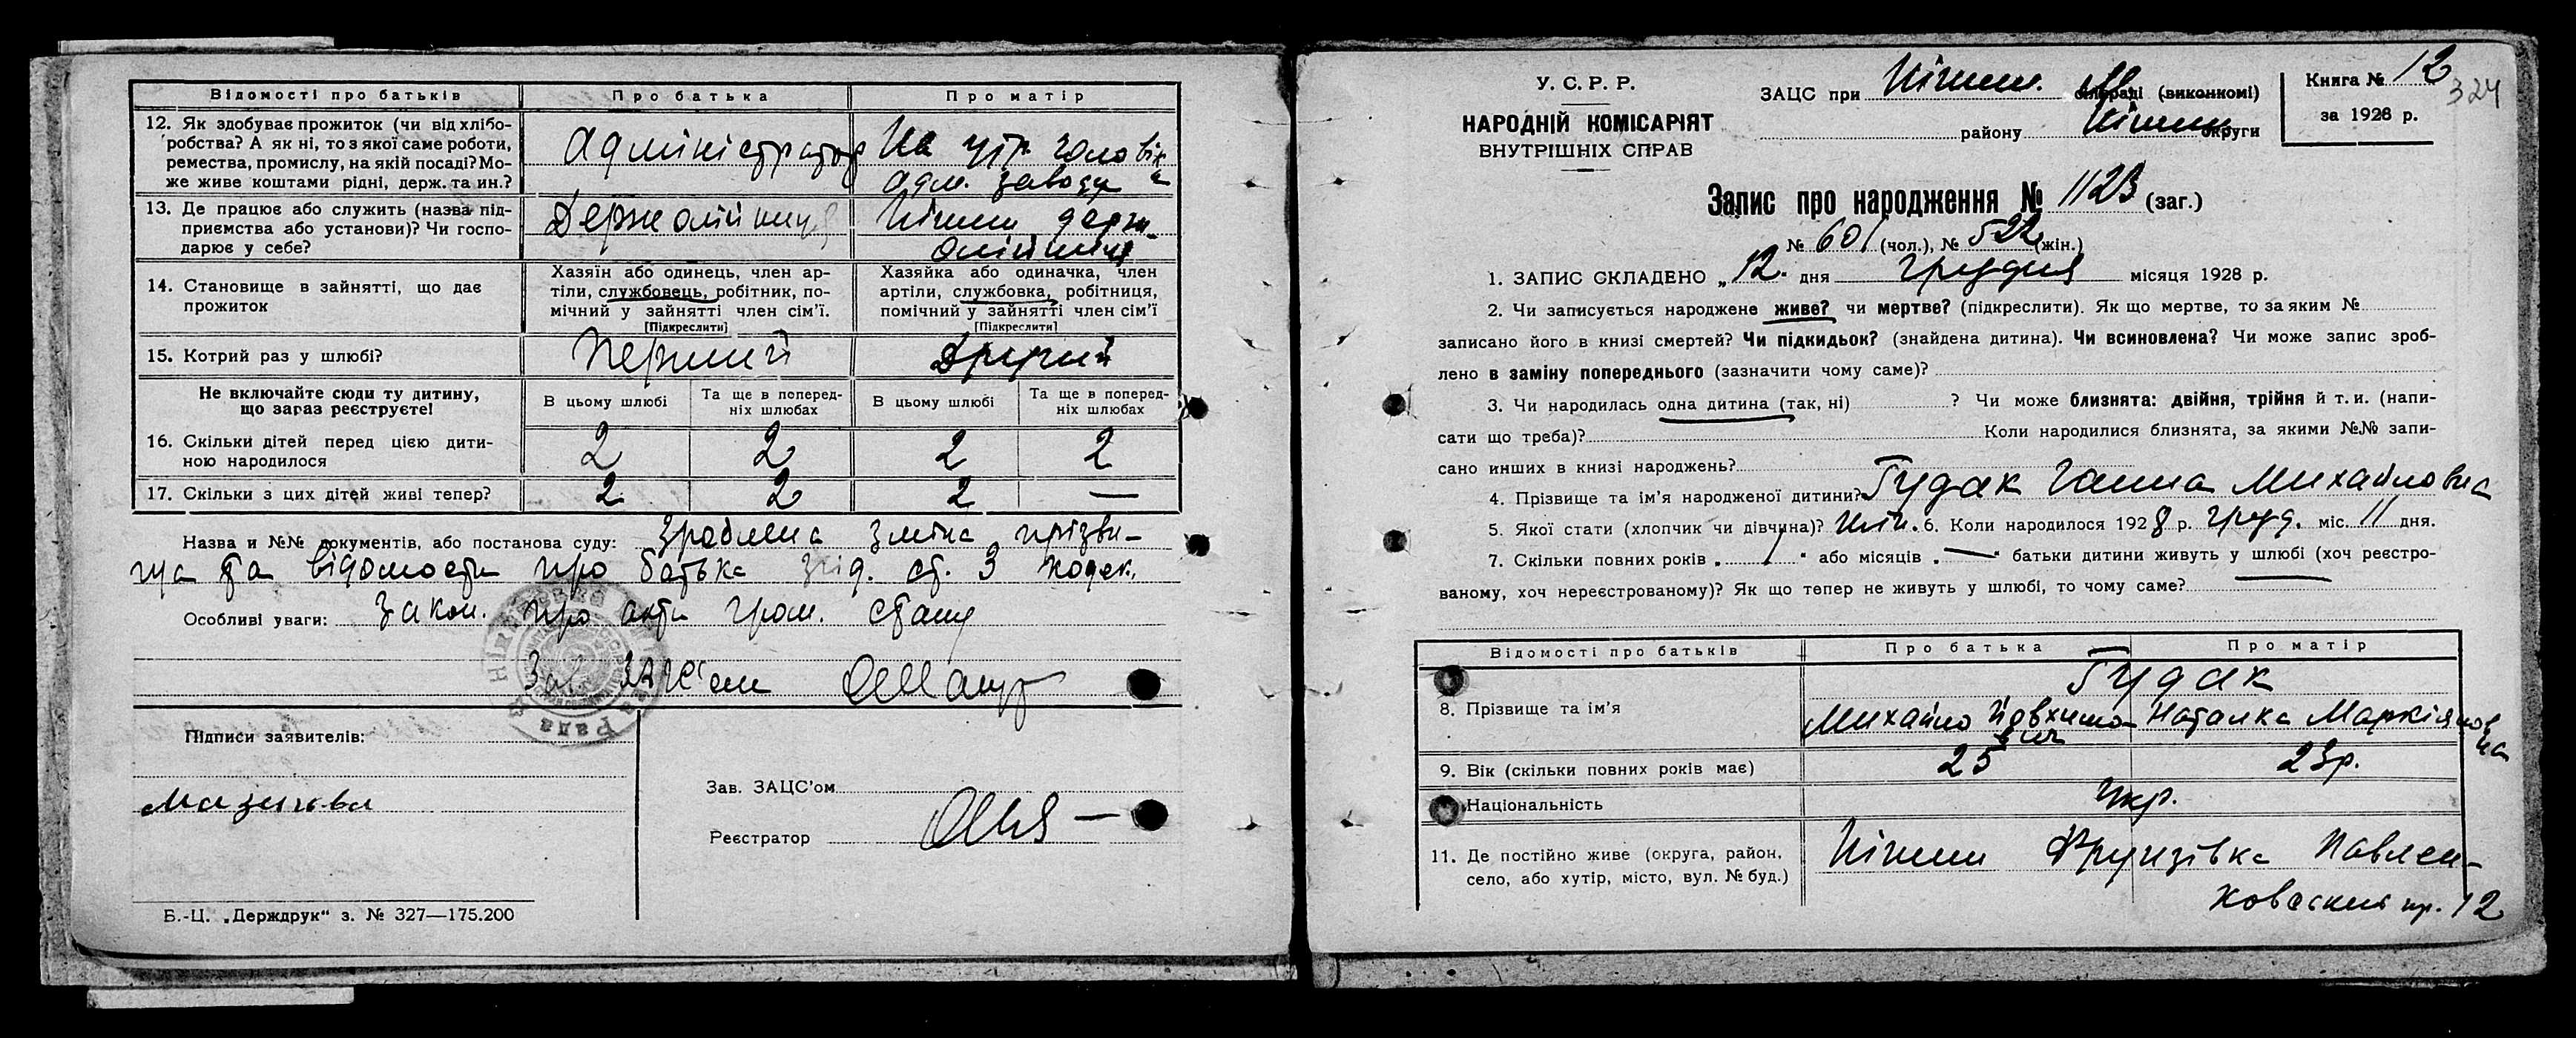 Відомості про батьків Про батька Про матір
12. Як здобуває прожиток (чи від хлібо- Адміністратор На утр. чоловіка
робства? А як ні, то з якої саме роботи,
ремества, промислу, на якій посаді? Мо- адм. заводу
же живе коштами рідні, держ. та ин.?
13. Де працює або служить (назва під- Держолійниця Ніжин держ-
приємства або установи)? Чи госпо- олійниця
дарює у себе?
14. Становище в зайнятті, що дає
прожиток
Хазяїн або одинець, член ар-
тіли, службовець, робітник, по-
мічний у зайнятті член сім'ї.
[Підкреслити]
Хазяйка або одиначка, член
артіли, службовка, робітниця,
помічний у зайнятті член сім'ї
[Підкреслити]
15. Котрий раз у шлюбі? Перший Другий
Не включайте сюди ту дитину,
що зараз реєструєте!
В цьому шлюбі
Та ще в поперед-
ніх шлюбах
В цьому шлюбі
Та ще в поперед-
ніх шлюбах
16. Скільки дітей перед цією дити- 2 2 2 2
ною народилося
17. Скільки з цих дітей живі тепер? 2 2 2 —
Назва и №№ документів, або постанова суду: Зроблена зміна прізви-
ща та відомости про батька згід. ст. 3 кодек.
Особливі уваги: закон. про акти гром. стану
Зав. ЗАГС'ом
Підписи заявителів:
Зав. ЗАЦС'ом
Реєстратор
Б.-Ц. „Держдрук" з. № 327—175.200
У. С. Р. Р.
НАРОДНІЙ КОМІСАРІЯТ
ВНУТРІШНІХ СПРАВ
ЗАЦС при Ніжин. М. сільраді (виконкомі)
району Ніжин округи
Книга № 12
за 1928 р.
324
Запис про народження № 1123 (заг.)
№ 601 (чол.), № 522 (жін.)
1. ЗАПИС СКЛАДЕНО „12. дня грудня місяця 1928 р.
2. Чи записується народжене живе? чи мертве? (підкреслити). Як що мертве, то за яким №
записано його в книзі смертей? Чи підкидьок? (знайдена дитина). Чи всиновлена? Чи може запис зроб-
лено в заміну попереднього (зазначити чому саме)?
3. Чи народилась одна дитина (так, ні) ? Чи може близнята: двійня, трійня й т. и. (напи-
сати що треба)? Коли народилися близнята, за якими №№ запи-
сано инших в книзі народжень?
4. Прізвище та ім'я народженої дитини? Гудак Ганна Михайловна
5. Якої стати (хлопчик чи дівчина)? жін. 6. Коли народилося 1928 р. груд. міс. 11 дня.
7. Скільки повних років „ / " або місяців „ — " батьки дитини живуть у шлюбі (хоч реєстро-
ваному, хоч нереєстрованому)? Як що тепер не живуть у шлюбі, то чому саме?
Відомості про батьків Про батька Про матір
Гудак
8. Прізвище та ім'я Михайло Йовхимович Наталка Маркіяновна
9. Вік (скільки повних років має) 25 23р.
Національність Укр.
11. Де постійно живе (округа, район, Ніжин Фрунзівка Павлен-
село, або хутір, місто, вул. № буд.)
ковский пр. 12